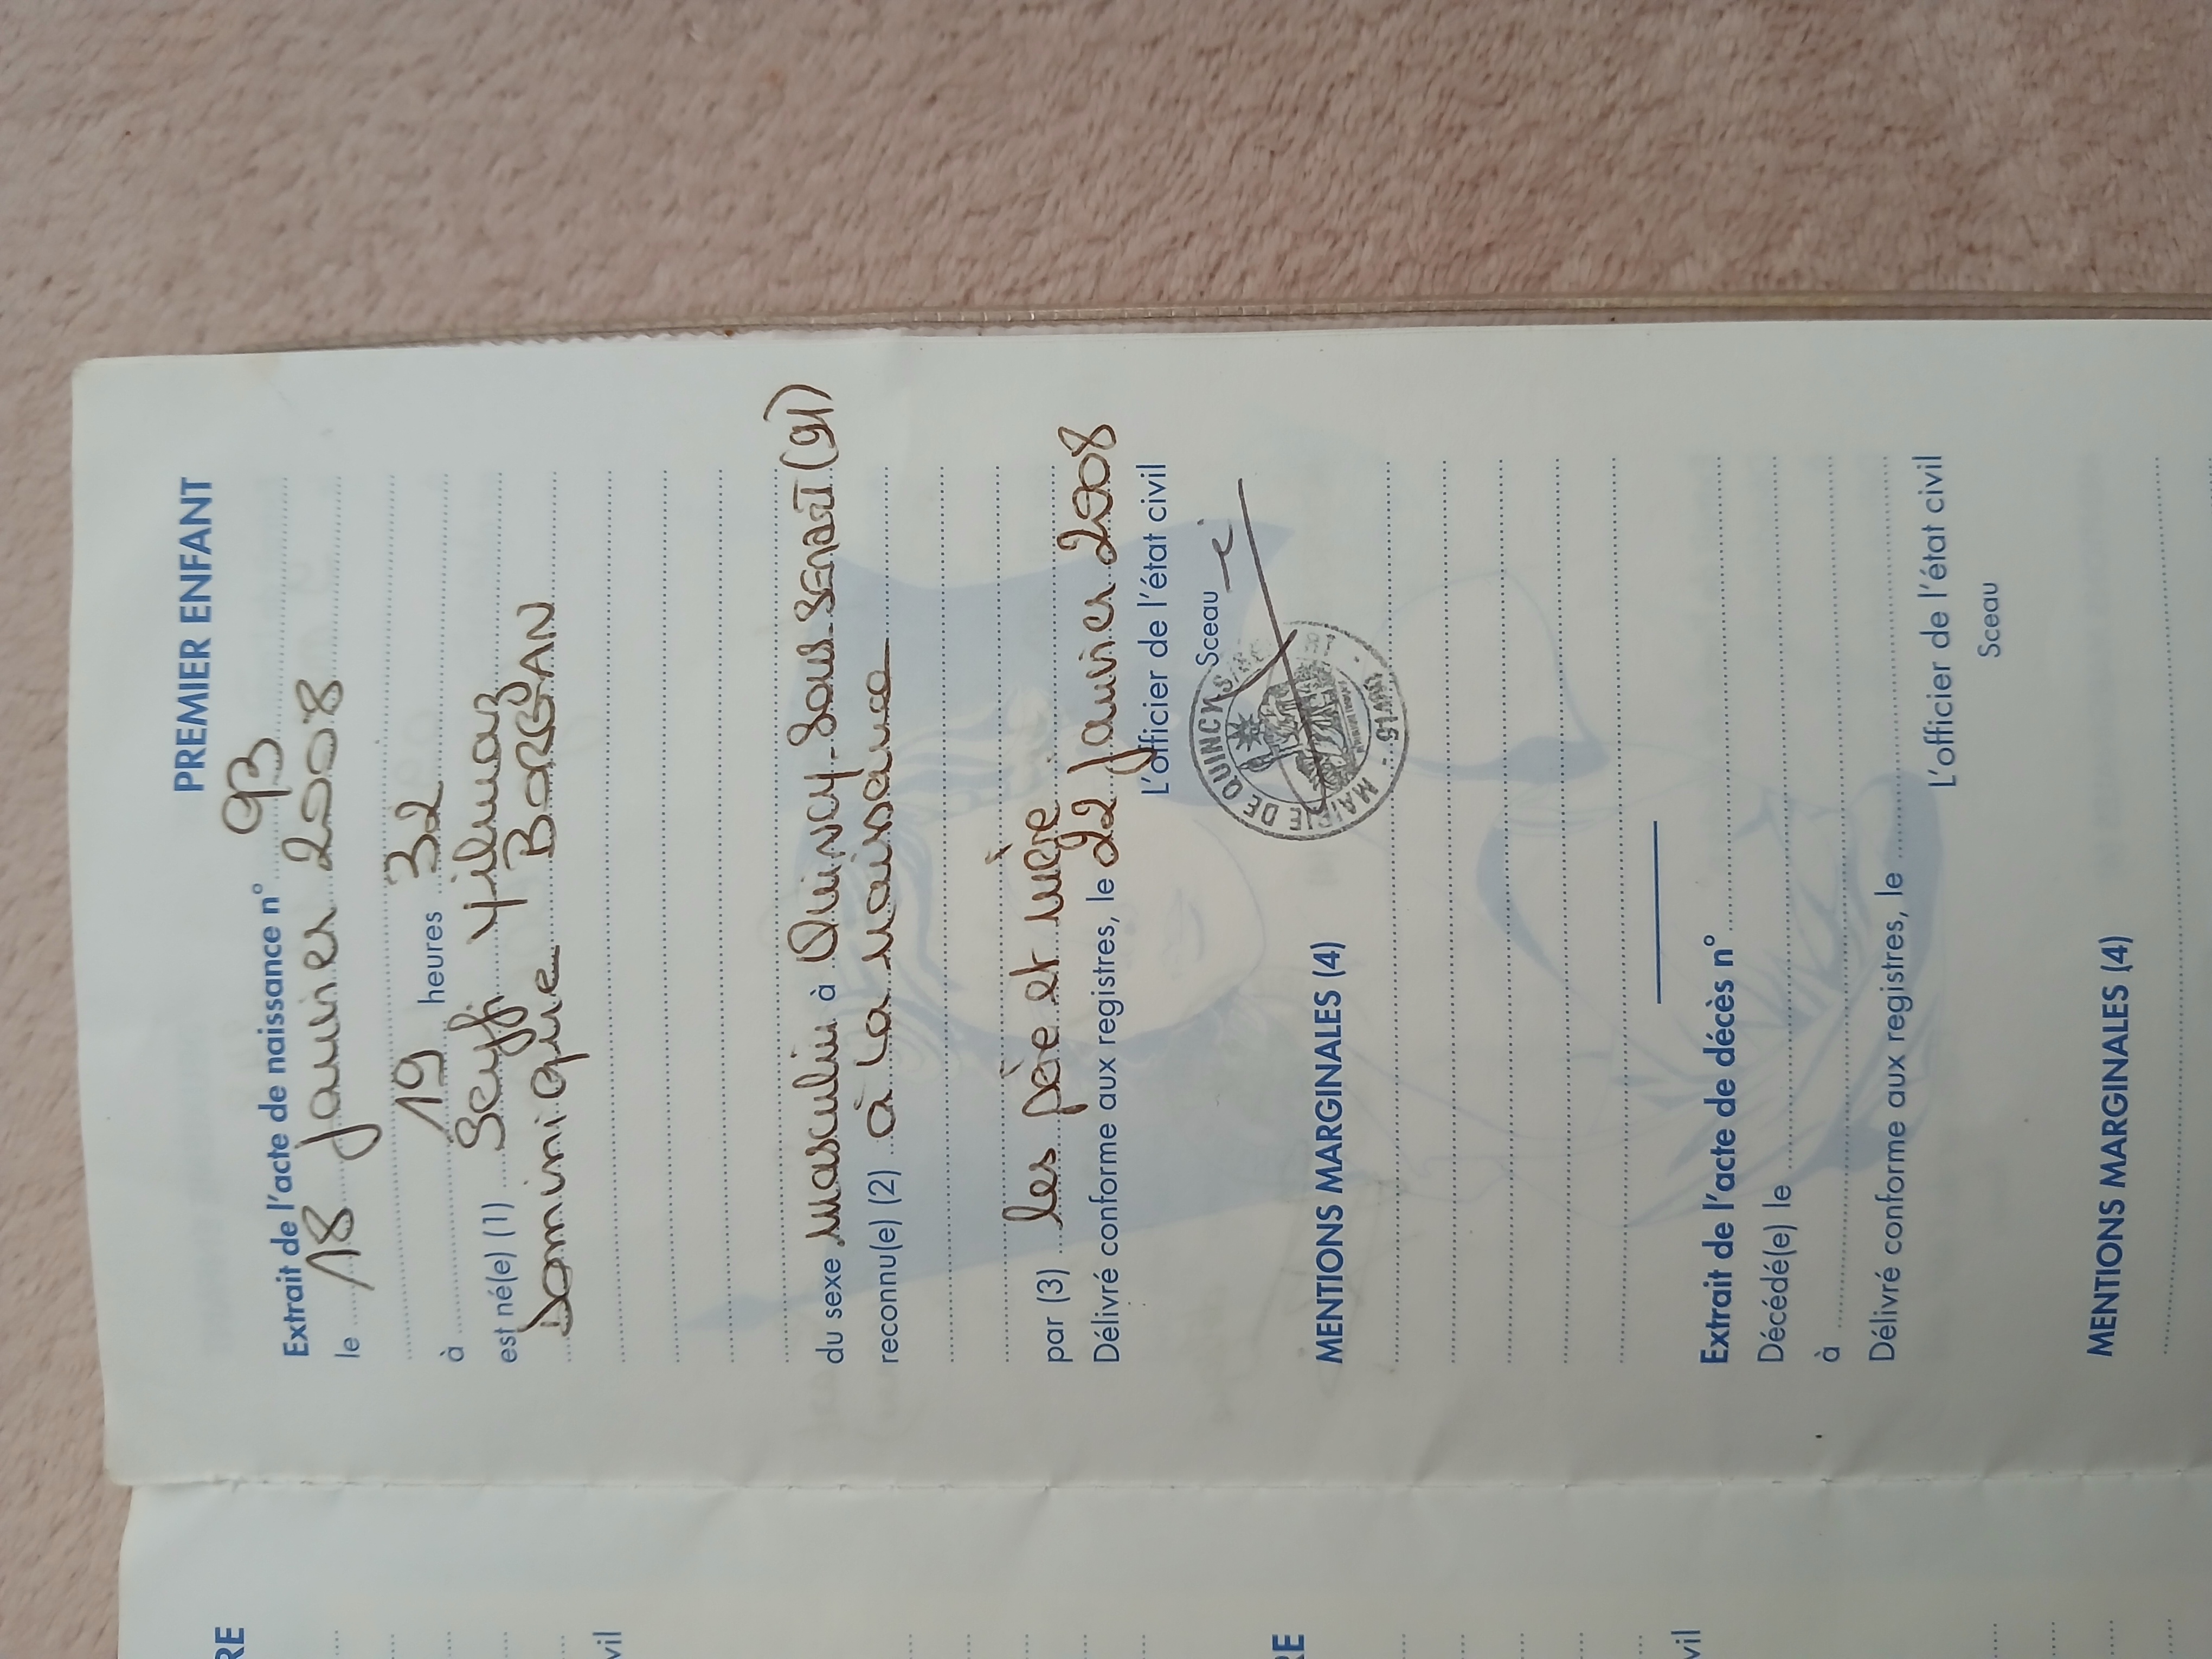 PREMIER ENFANT
Extrait de l'acte de naissance n° 93
le 18 Janvier 2008
à 19 heures 32
est né(e) (1) Seyfi Yilmaz
Dominique BORGAN
du sexe masculin à Quincy-sous-Senart (91)
reconnu(e) (2) à la naissance
par (3) les père et mère
Délivré conforme aux registres, le 22 Janvier 2008
L'officier de l'état civil
Sceau
MAIRIE DE QUINCY S/S
MENTIONS MARGINALES (4)
Extrait de l'acte de décès n°
Décédé(e) le
à
Délivré conforme aux registres, le
L'officier de l'état civil
Sceau
MENTIONS MARGINALES (4)
RE
vil
RE
vil